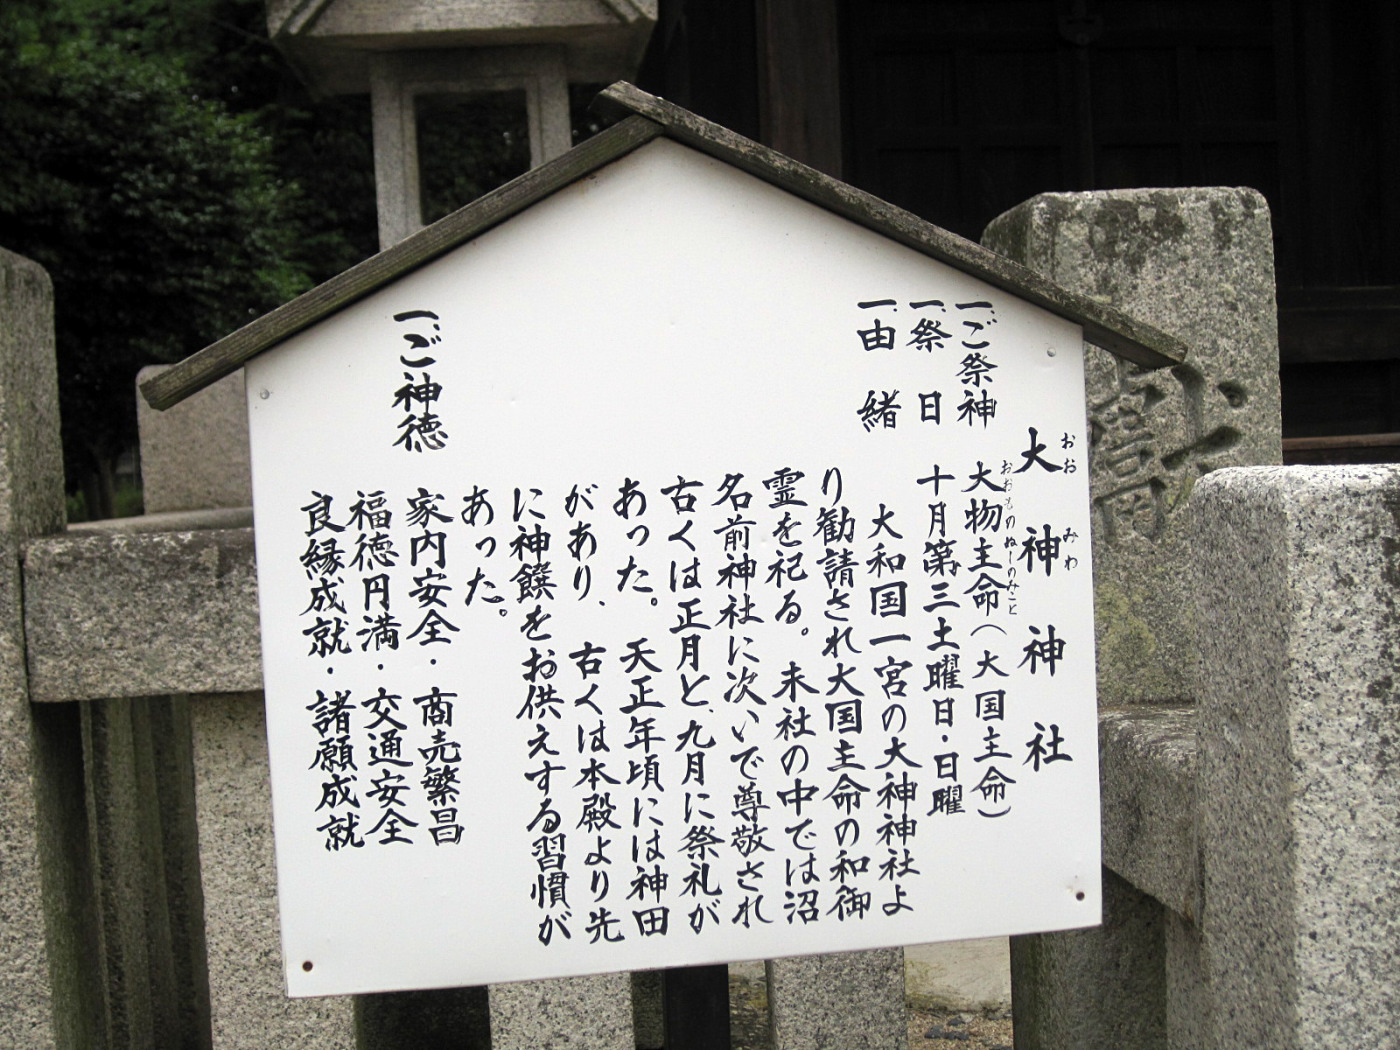 大神神社
おおみわ
一、ご祭神 大物主命(大国主命)
おおものぬしのみこと
一、祭日 十月第三土曜日・日曜
一、由緒 大和国一宮の大神神社よ
り勧請され大国主命の和御
霊を祀る。末社の中では沼
名前神社に次いで尊敬され
古くは正月と、九月に祭礼が
あった。天正年頃には神田
があり、古くは本殿より先
に神饌をお供えする習慣が
あった。
一、ご神徳 家内安全・商売繁昌
福徳円満・交通安全
良縁成就・諸願成就